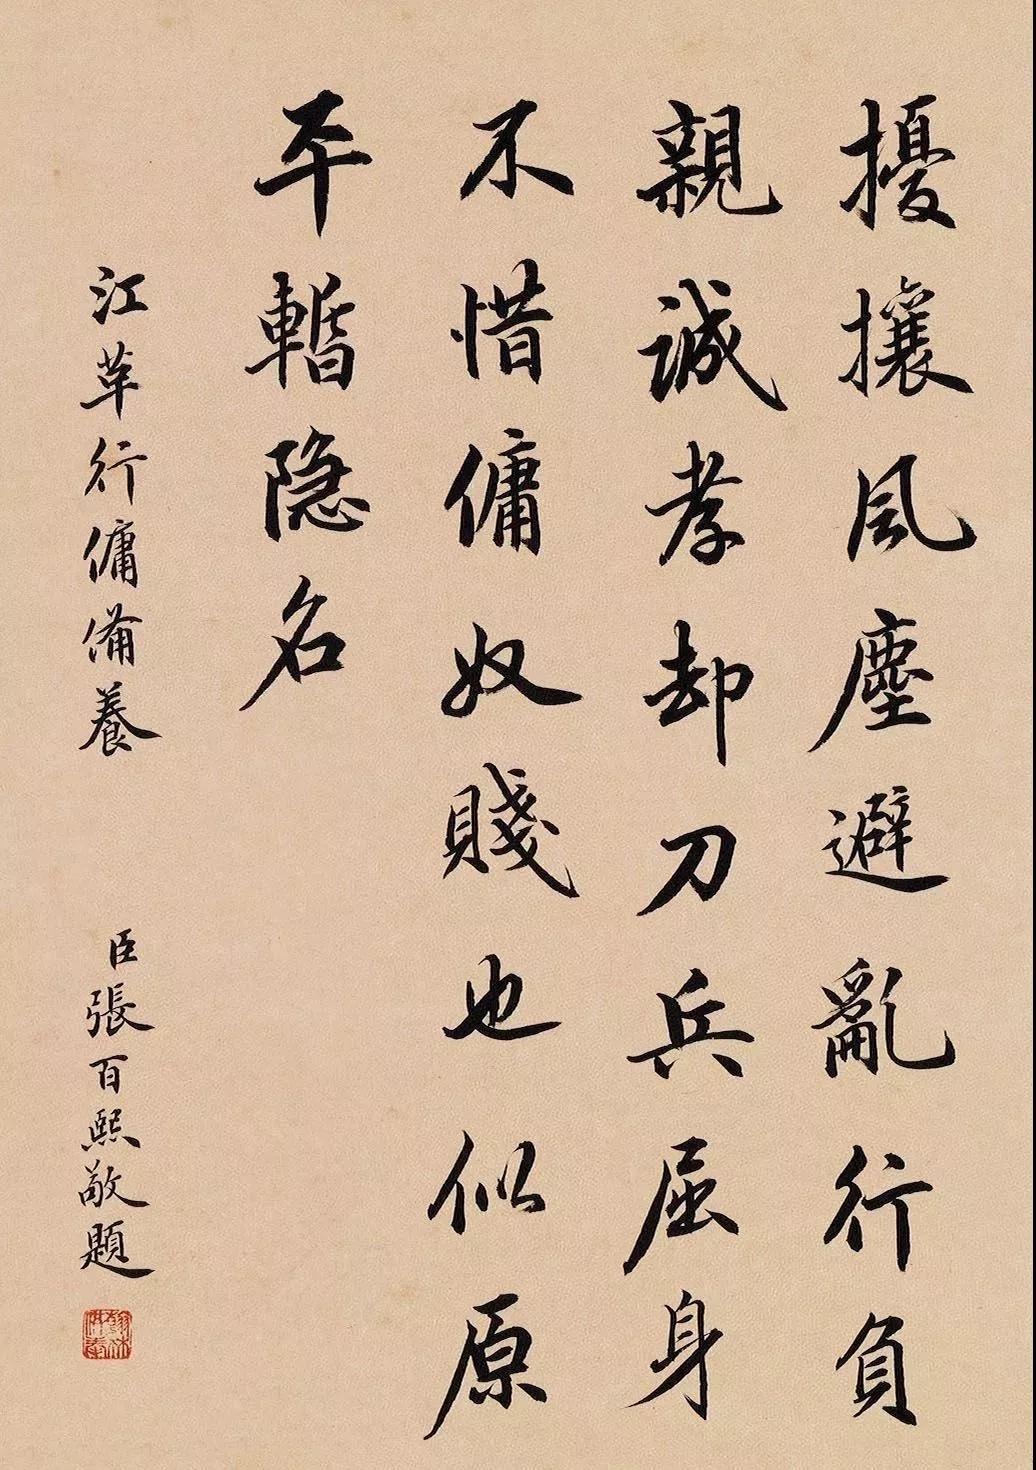 擾攘風塵避亂行負
親誠孝却刀兵屈身
不惜傭奴賤也似原
平暫隐名
江革行傭備養
臣張百熙敬題
翰林供奉